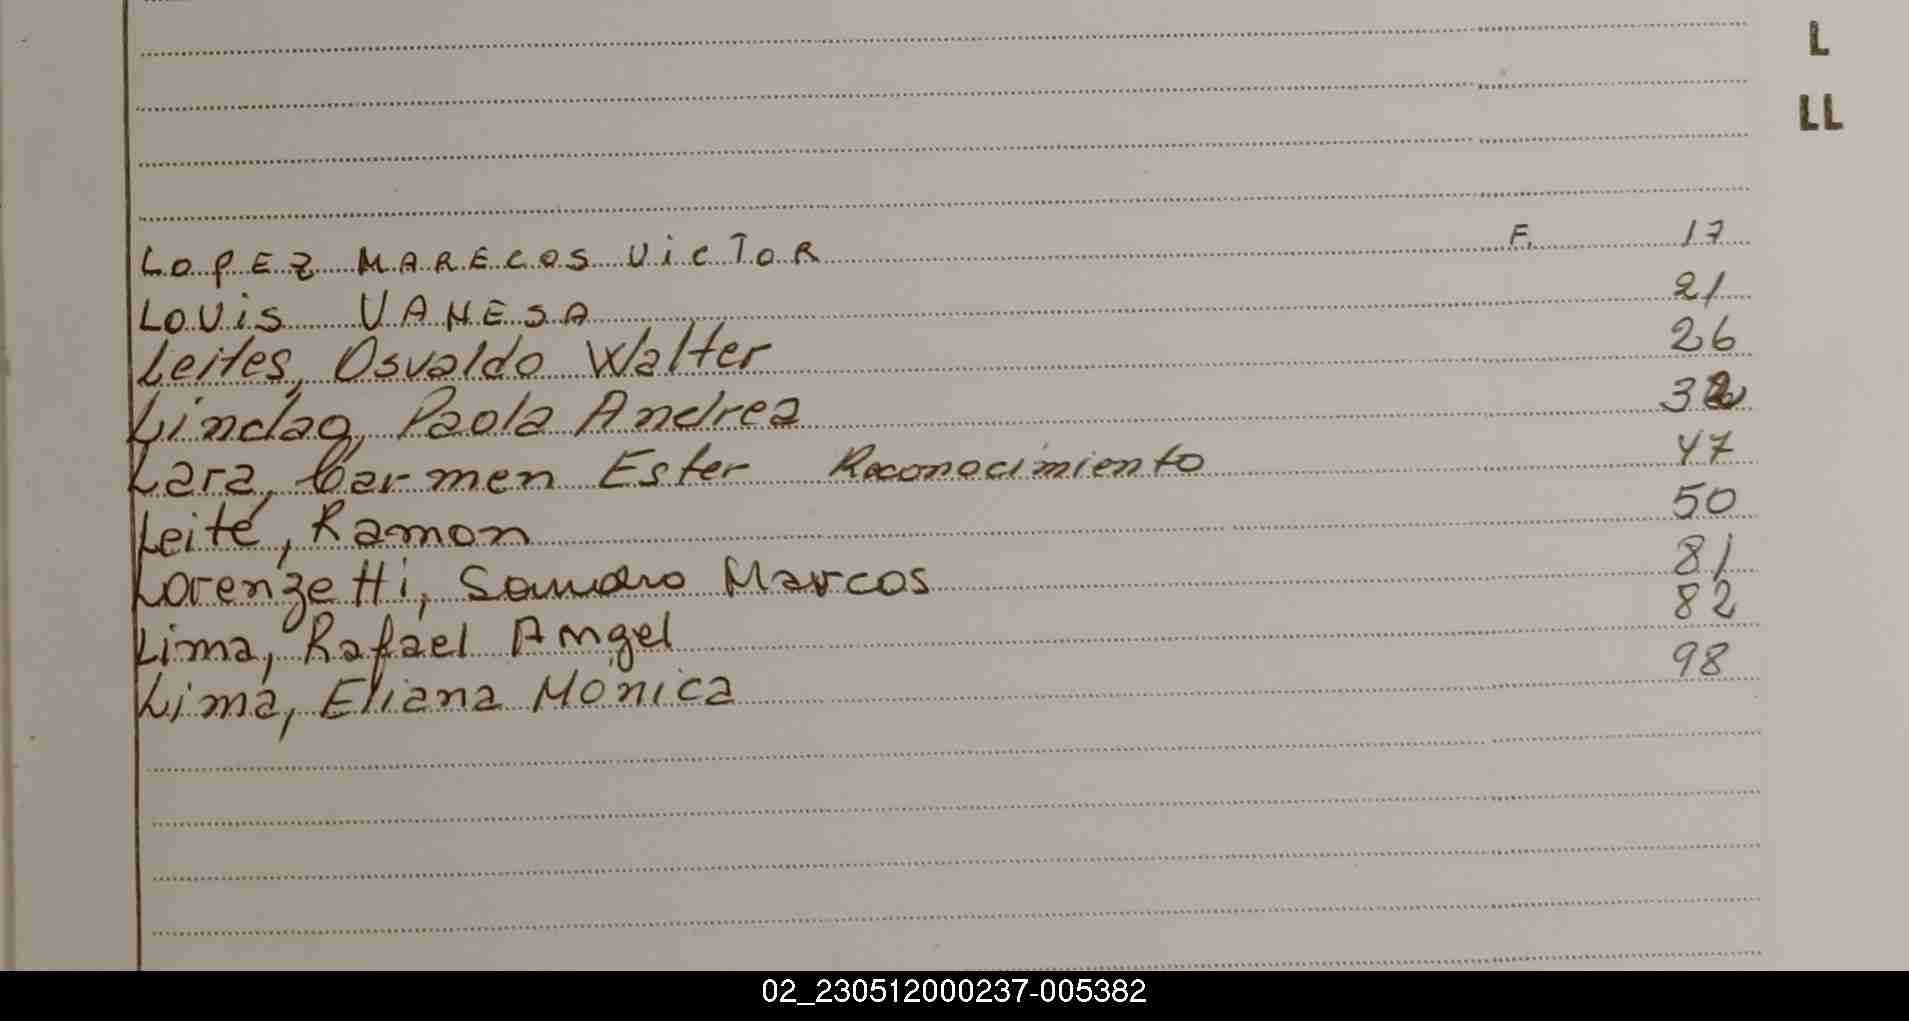 L
LL
LOPEZ MARECOS VICTOR F. 17
LOUIS VANESA 21
Leites, Osvaldo Walter 26
Lindao, Paola Andrea 32
Lara, Carmen Ester Reconocimiento 47
Leite, Ramon 50
Lorenzetti, Sandro Marcos 81
Lima, Rafael Angel 82
Lima, Eliana Mónica 98
02_230512000237-005382